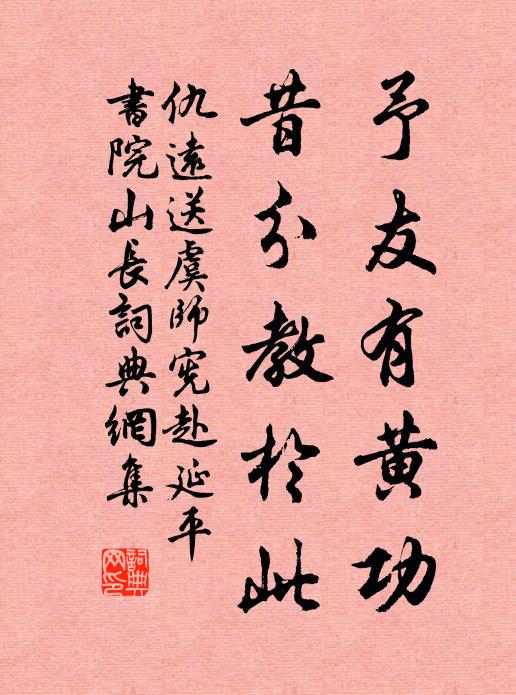 予友有黄功
昔分教於此
仇遠送虞師憲赴延平
書院山長詞典網集
詞典網印